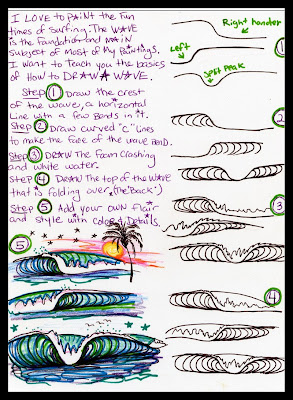 I LOVE to PAINT the Fun
times of Surfing. The WAVE
is the Foundation and MAIN
Subject of Most of My Paintings.
I want to Teach you the basics
of How to DRAW A WAVE.
Step 1 Draw the crest
of the wave, a horizontal
Line with a few Bends in it.
Step 2 Draw curved "c" Lines
to make the face of the wave BEND.
Step 3 DRAW The Foam Crashing
and white water.
Step 4 DRAW The top of the WAVE
that is folding over. (The "Back")
Step 5 Add your own Flair
and style with color & Details.
Right hander
1
Left
Split Peak
2
3
4
5